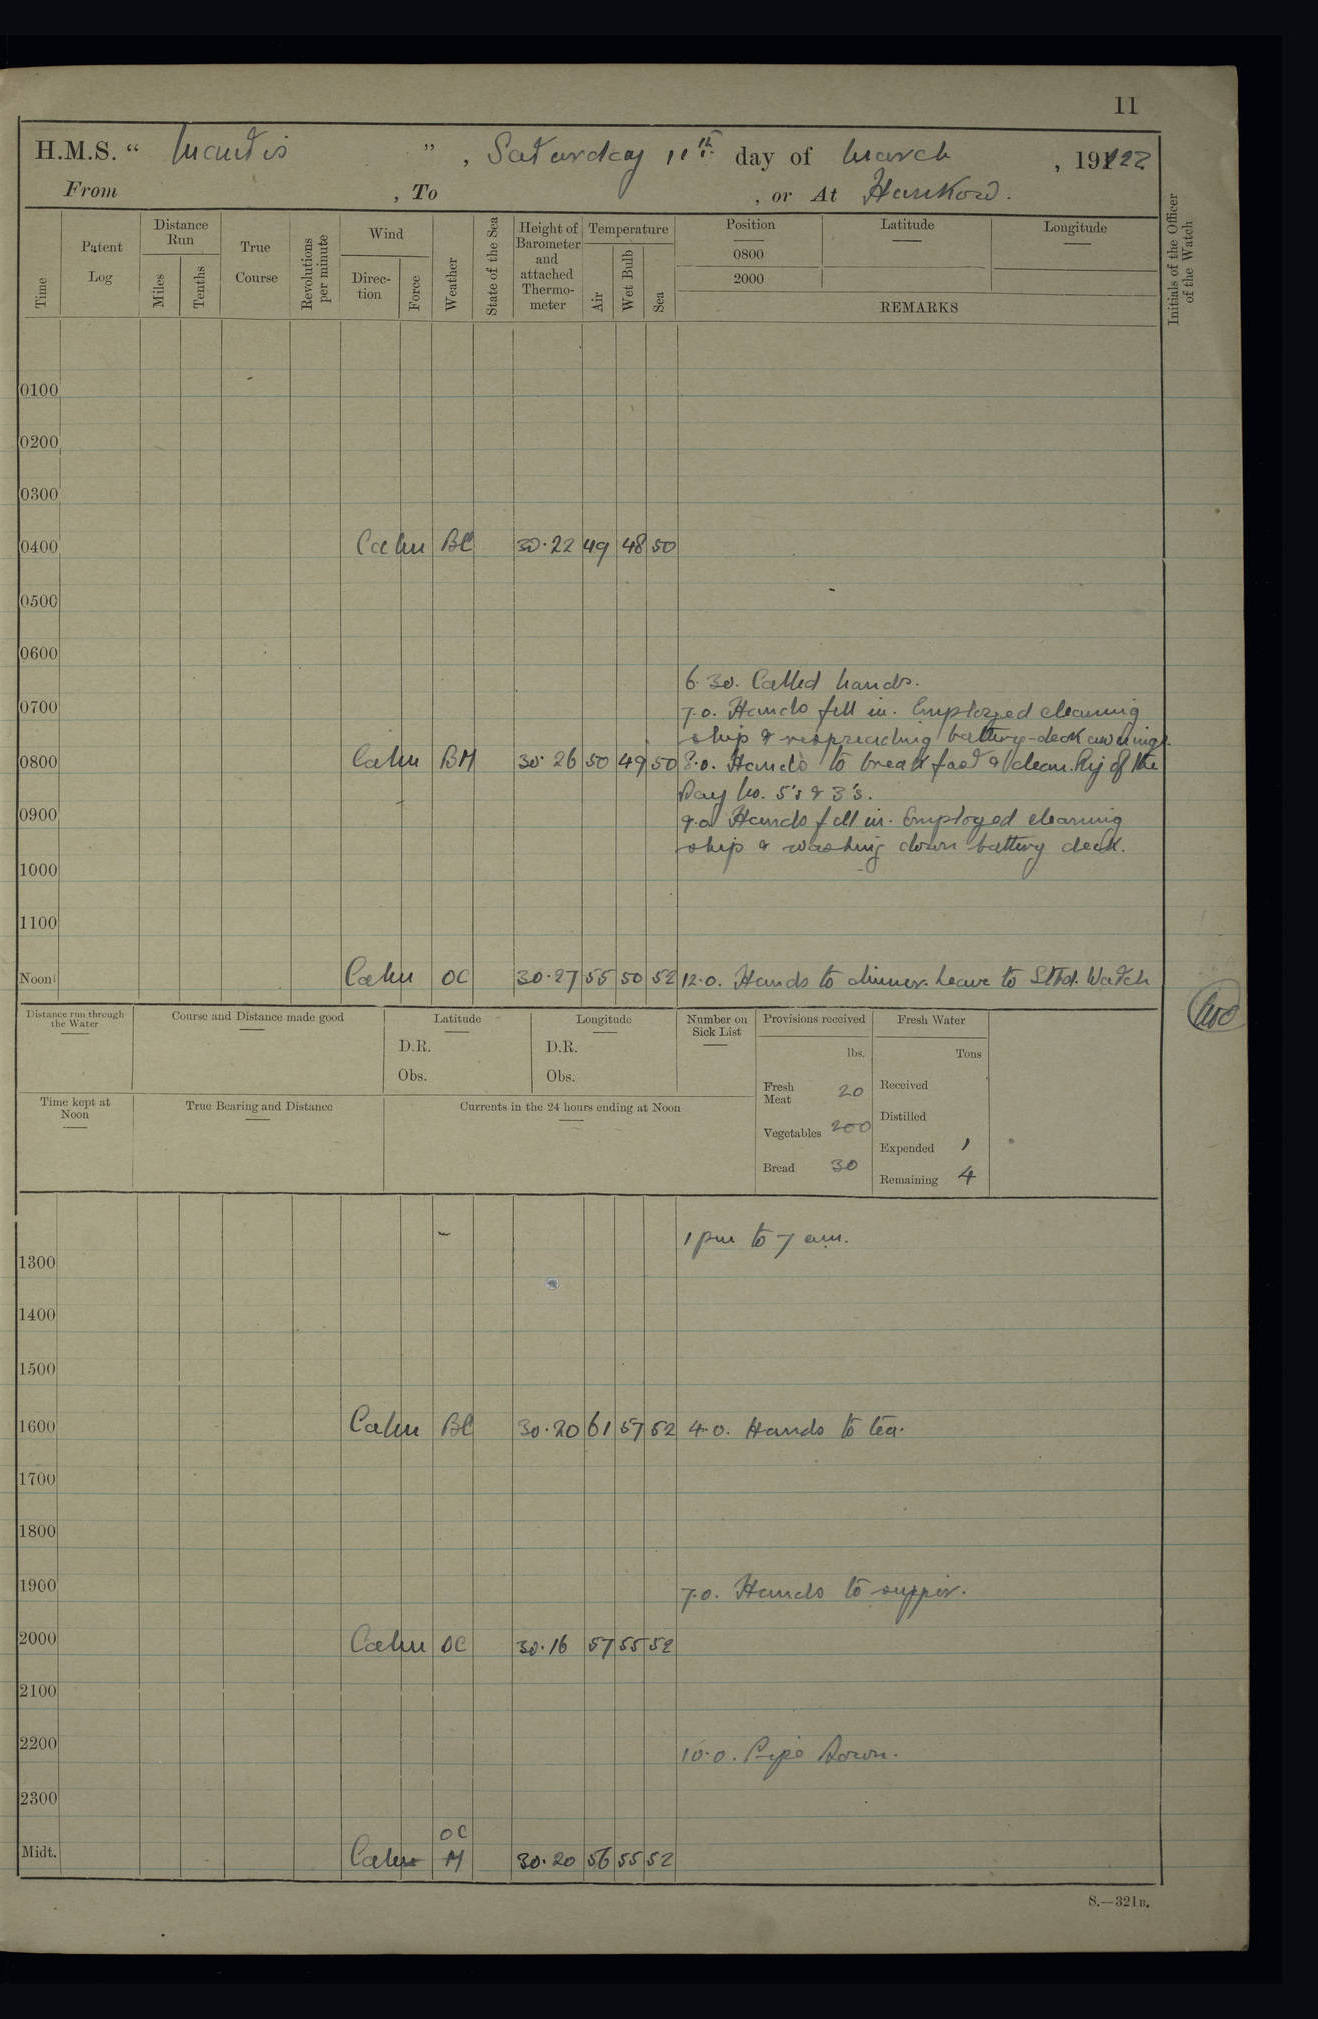 11
H.M.S. " Mantis " , Saturday 11th day of March , 1922
From , To , or At Hankow.
Time
Patent Log
Distance Run
Miles
Tenths
True Course
Revolutions per minute
Wind
Direc-tion
Force
Weather
State of the Sea
Height of Barometer and attached Thermo-meter
Temperature
Air
Wet Bulb
Sea
Position
0800
2000
Latitude
Longitude
REMARKS
Initials of the Officer of the Watch
0100
0200
0300
0400 Calm BC 30.22 49 48 50
0500
0600
6.30. Called hands.
0700 7.0. Hands fell in. Employed cleaning
ship & respreading battery-deck awnings.
0800 Calm BM 30.26 50 49 50 8.0. Hands to breakfast & clean. Rig of the
Day No. 5's & 3's.
0900 9.0 Hands fell in. Employed cleaning
ship & washing down battery deck.
1000
1100
Noon Calm OC 30.27 55 50 52 12.0. Hands to dinner. Leave to Stbd. Watch
Distance run through the Water
Course and Distance made good
Latitude
D.R.
Obs.
Longitude
D.R.
Obs.
Number on Sick List
Provisions received
lbs.
Fresh Meat 20
Vegetables 200
Bread 30
Fresh Water
Tons
Received
Distilled
Expended 1
Remaining 4
Time kept at Noon
True Bearing and Distance
Currents in the 24 hours ending at Noon
1 pm to 7 am.
1300
1400
1500
1600 Calm BC 30.20 61 57 52 4.0. Hands to tea.
1700
1800
1900 7.0. Hands to supper.
2000 Calm OC 30.16 57 55 52
2100
2200 10.0. Pipe Down.
2300
OC
Midt. Calm M 30.20 56 55 52
S.—321B.